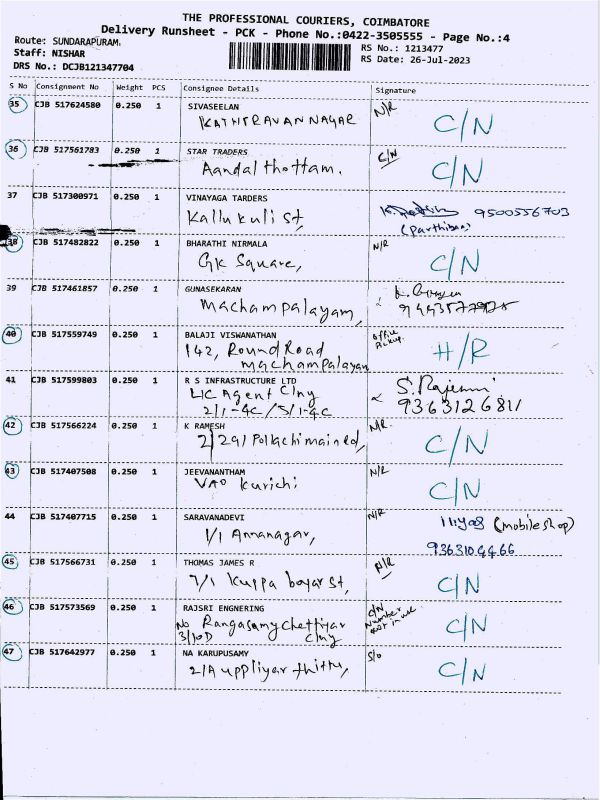 THE PROFESSIONAL COURIERS, COIMBATORE
Delivery Runsheet - PCK - Phone No.:0422-3505555 - Page No.:4
Route: SUNDARAPURAM.
Staff: NISHAR
DRS No.: DCJB121347704
RS No.: 1213477
RS Date: 26-Jul-2023
S No Consignment No Weight PCS Consignee Details Signature
35 CJB 517624580 0.250 1 SIVASEELAN N/R
KATHIRAVAN NAGAR C/N
36 CJB 517561783 0.250 1 STAR TRADERS C/N
Aandal thottam. C/N
37 CJB 517300971 0.250 1 VINAYAGA TARDERS
Kallukuli st, 9500556703
(Parthiban)
38 CJB 517482822 0.250 1 BHARATHI NIRMALA N/R
GK Square, C/N
39 CJB 517461857 0.250 1 GUNASEKARAN
Machampalayam,
40 CJB 517559749 0.250 1 BALAJI VISWANATHAN office Pickup.
142, Round Road H/R
Machampalayam
41 CJB 517599803 0.250 1 R S INFRASTRUCTURE LTD
LIC Agent Clny
2/1-4C/5/1-4C 9363126811
42 CJB 517566224 0.250 1 K RAMESH N/R.
2/291 Pollachi main rd, C/N
43 CJB 517407508 0.250 1 JEEVANANTHAM N/R
VAO Kurichi C/N
44 CJB 517407715 0.250 1 SARAVANADEVI N/R
1/1 Annanagar, (mobile shop)
9363104466
45 CJB 517566731 0.250 1 THOMAS JAMES R N/R
7/1 Kuppa boyar st, C/N
46 CJB 517573569 0.250 1 RAJSRI ENGNERING C/N
No Rangasamy Chettiyar Number not in use
3/10D Clny C/N
47 CJB 517642977 0.250 1 NA KARUPUSAMY S/o
2/A uppliyar thittu, C/N